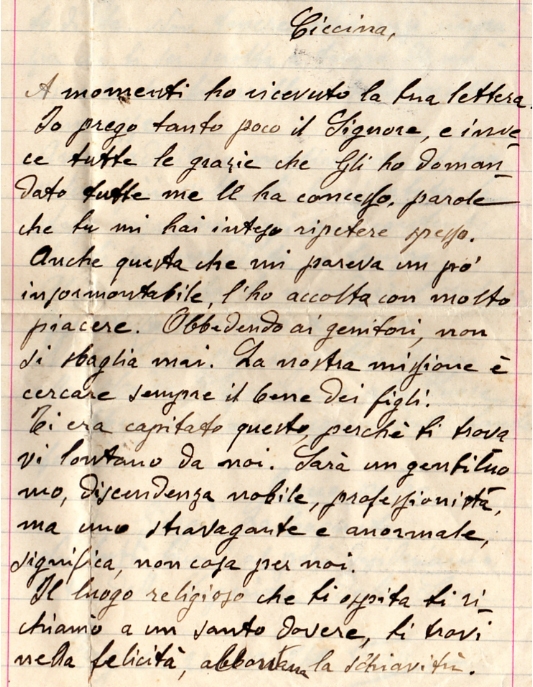 Ciccina,
A momenti ho ricevuto la tua lettera.
Io prego tanto poco il Signore, e inve-
ce tutte le grazie che Gli ho doman-
dato tutte me ll ha concesso, parole
che tu mi hai inteso ripetere spesso.
Anche questa che mi pareva un po'
insormontabile, l'ho accolta con molto
piacere. Obbedendo ai genitori, non
si sbaglia mai. La nostra missione è
cercare sempre il bene dei figli.
Ti era capitato questo, perchè ti trova
vi lontano da noi. Sarà un gentiluo
mo, discendenza nobile, professionista,
ma uno stravagante e anormale,
significa, non cosa per noi.
Il luogo religioso che ti ospita ti ri-
chiamò a un santo dovere, ti trovi
nella felicità, la schiavitù.